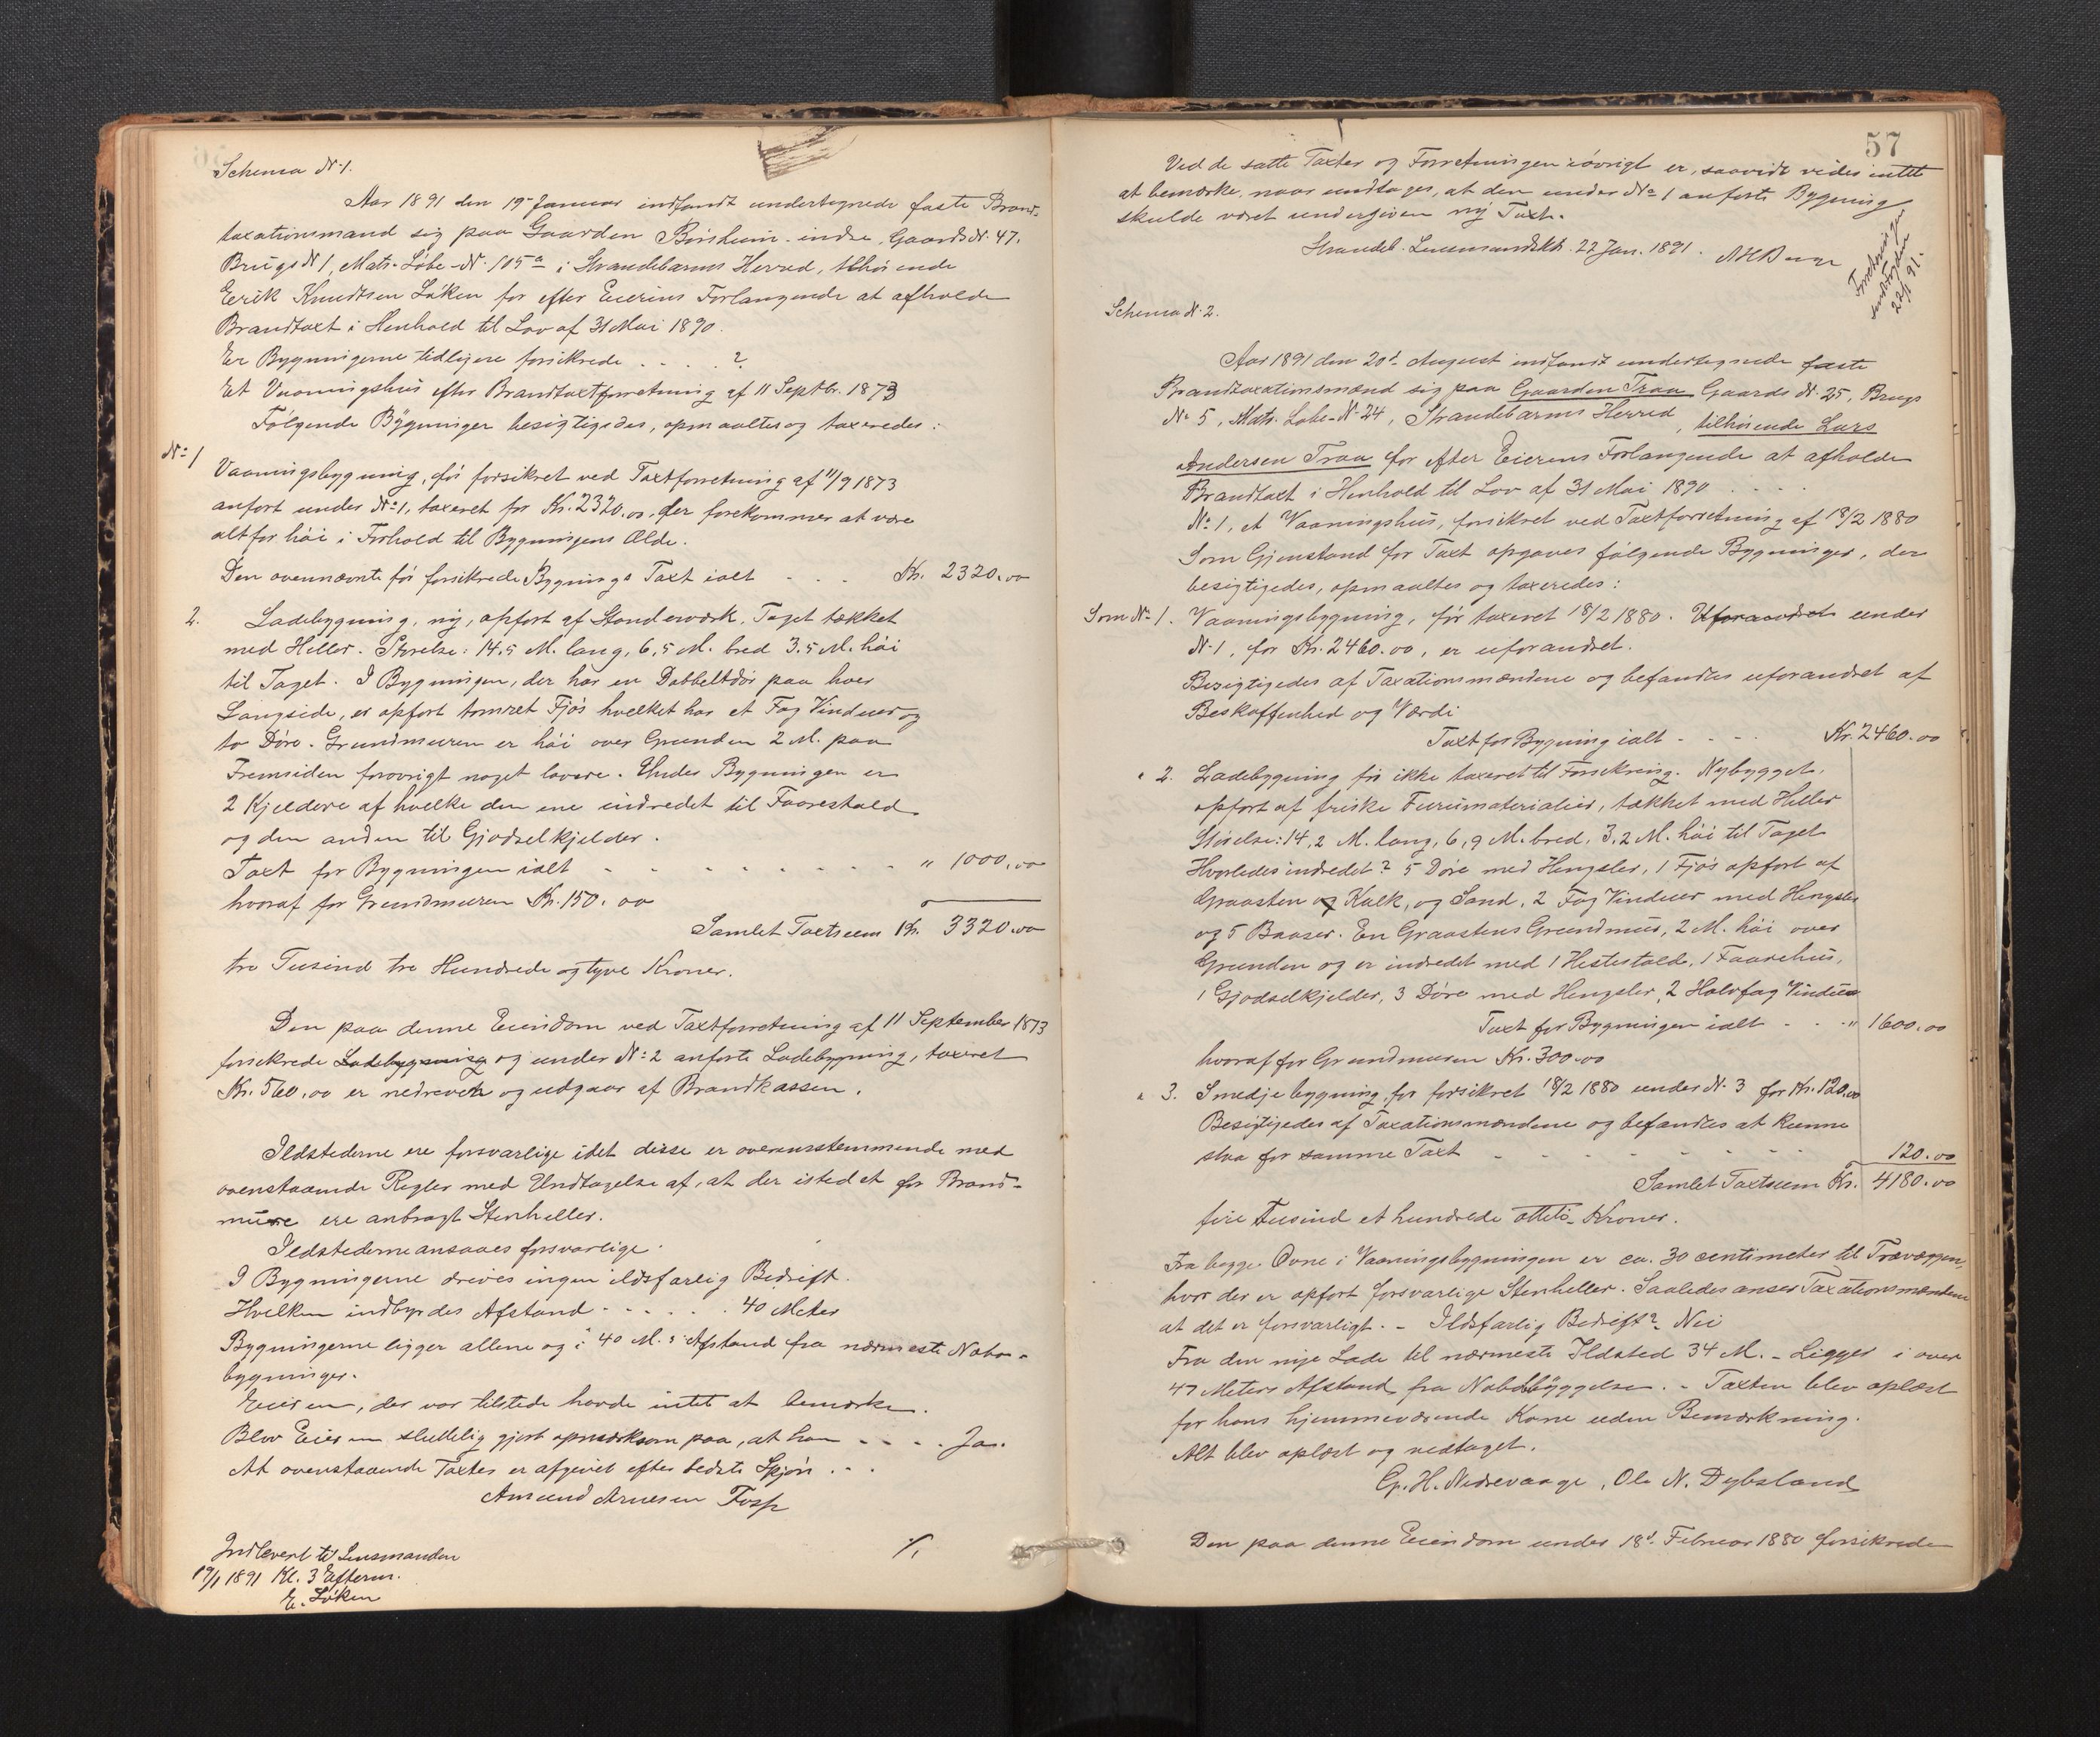 Schema N. 1.
Aar 1891 den 19de Januar indfandt undertegnede faste Brand-
taxationsmænd sig paa Gaarden Børsheim indre, Gaards N. 47,
Brugs N 1, Matr. Løbe-N. 105a i Strandebarms Herred, tilhørende
Eerik Knudtsen Løken for efter Eierens Forlangende at afholde
Brandtaxt i Henhold til Lov af 31 Mai 1890.
Er Bygningerne tidligere forsikrede . . . . ?
Et Vaaningshus efter Brandtaxtforretning af 11 Septbr. 1873
Følgende Bygninger besigtigedes, opmaaltes og taxeredes:
No 1
Vaaningsbygning, før forsikret ved Taxtforretning af 11/9 1873
anført under No 1, taxeret for Kr. 2320.00, der forekommer at være
altfor høi i Forhold til Bygningens Ælde.
Den ovennævnte før forsikrede Bygnings Taxt ialt - - - Kr. 2320.00
2. Ladebygning, ny, opført af Standerværk. Taget tækket
med Heller. Størelse: 14.5 M. lang, 6,5 M. bred 3.5 M. høi
til Taget. I Bygningen, der har en Dobbeltdør paa hver
Langside, er opført tømret Fjøs hvelket har et Fag Vinduer og
to Døre. Grundmuren er høi over Grunden 2 M. paa
Fremsiden forøvrigt noget lavere. Under Bygningen er
2 Kjeldere af hvelke den ene indredet til Faarestald
og den anden til Gjødselkjelder.
Taxt for Bygningen ialt - - - - - - - - " 1000.00
hvoraf for Grundmuren Kr. 150.00
Samlet Taxtsum Kr. 3320.00
tre Tusind tre Hundrede og tyve Kroner.
Den paa denne Eiendom ved Taxtforretning af 11 September 1873
forsikrede Ladebygning og under No 2 anførte Ladebygning, taxeret
Kr. 560.00 er nedreven og udgaar af Brandkassen.
Ildstederne ere forsvarlige idet disse er overensstemmende med
ovenstaaende Regler med Undtagelse af, at der istedet for Brand-
mure ere anbragt Stenheller.
Ildstederne ansaaes forsvarlige.
I Bygningerne drives ingen ildsfarlig Bedrift.
Hvelken indbyrdes Afstand - - - - - 40 Meter
Bygningerne ligger allene og i 40 M.s Afstand fra nærmeste Nabo-
bygninger.
Eieren, der var tilstede havde intet at bemærke.
Blev Eieren sluttelig gjort opmærksom paa, at han - - - - Ja.
At ovenstaaende Taxter er afgivet efter bedste Skjøn - - -
Amund Arnesen Fosse
Indleveret til Lensmanden
19/1 1891 Kl. 3 Efterm.
E. Løken
%
57
Ved de satte Taxter og Forretningen iøvrigt er, saavidt vides intet
at bemærke, naar undtages, at den under No 1 anførte Bygning
skulde været undergiven ny Taxt.
Strandeb. Lensmandskt. 22 Jan. 1891.
22/1 91.
Schema N. 2.
Aar 1891 den 20de August indfandt undertegnede faste
Brandtaxationsmænd sig paa Gaarden Traa Gaards N. 25, Brugs
No 5, Matr. Løbe-N. 24, Strandebarms Herred, tilhørende Lars
Andersen Traa for efter Eierens Forlangende at afholde
Brandtaxt i Henhold til Lov af 31 Mai 1890 . . . .
No 1, et Vaaningshus, forsikret ved Taxtforretning af 18/2 1880
Som Gjenstand for Taxt opgaves følgende Bygninger, der
besigtigedes, opmaaltes og taxeredes:
Som No 1. Vaaningsbygning, før taxeret 18/2 1880. Uforandret under
N. 1, for Kr. 2460.00, er uforandret.
Besigtigedes af Taxationsmændene og befandtes uforandret af
Beskaffenhed og Værdi
Taxt for Bygning ialt - - - - Kr. 2460.00
" 2. Ladebygning før ikke taxeret til Forsikring. Nybygget,
opført af friske Furumaterialier, tækket med Heller
Størelse: 14,2 M. lang, 6,9 M. bred, 3,2 M. høi til Taget
Hvorledes indredet? 5 Døre med Hengsler, 1 Fjøs opført af
Graasten og Kalk, og Sand, 2 Fag Vinduer med Hengsler
og 5 Baaser. En Graastens Grundmur, 2 M. høi over
Grunden og er indredet med 1 Hestestald, 1 Faarehus,
1 Gjødselkjelder, 3 Døre med Hengsler, 2 Halvfag Vinduer
Taxt for Bygningen ialt - - - " 1600.00
hvoraf for Grundmuren Kr. 300.00
" 3. Smedjebygning, før forsikret 18/2 1880 under N. 3 for Kr. 120.00
Besigtigedes af Taxationsmændene og befandtes at kunne
staa for samme Taxt - - - - - - - 120.00
Samlet Taxtsum Kr. 4180.00
fire Tusind et hundrede otteti Kroner.
Fra begge Ovne i Vaaningsbygningen er ca. 30 centimeter til Trævæggen,
hvor der er opført forsvarlige Stenheller. Saaledes anser Taxationsmændene
at det er forsvarligt. - Ildsfarlig Bedrift? Nei
Fra den nye Lade til nærmeste Ildsted 34 M. - Ligger i over
47 Meters Afstand fra Nabobyggelse. - Taxten blev oplæst
for hans hjemmeværende Kone uden Bemærkning.
Alt blev oplæst og vedtaget.
G. H. Nedrevaage, Ole N. Dybsland
Den paa denne Eiendom under 18de Februar 1880 forsikrede